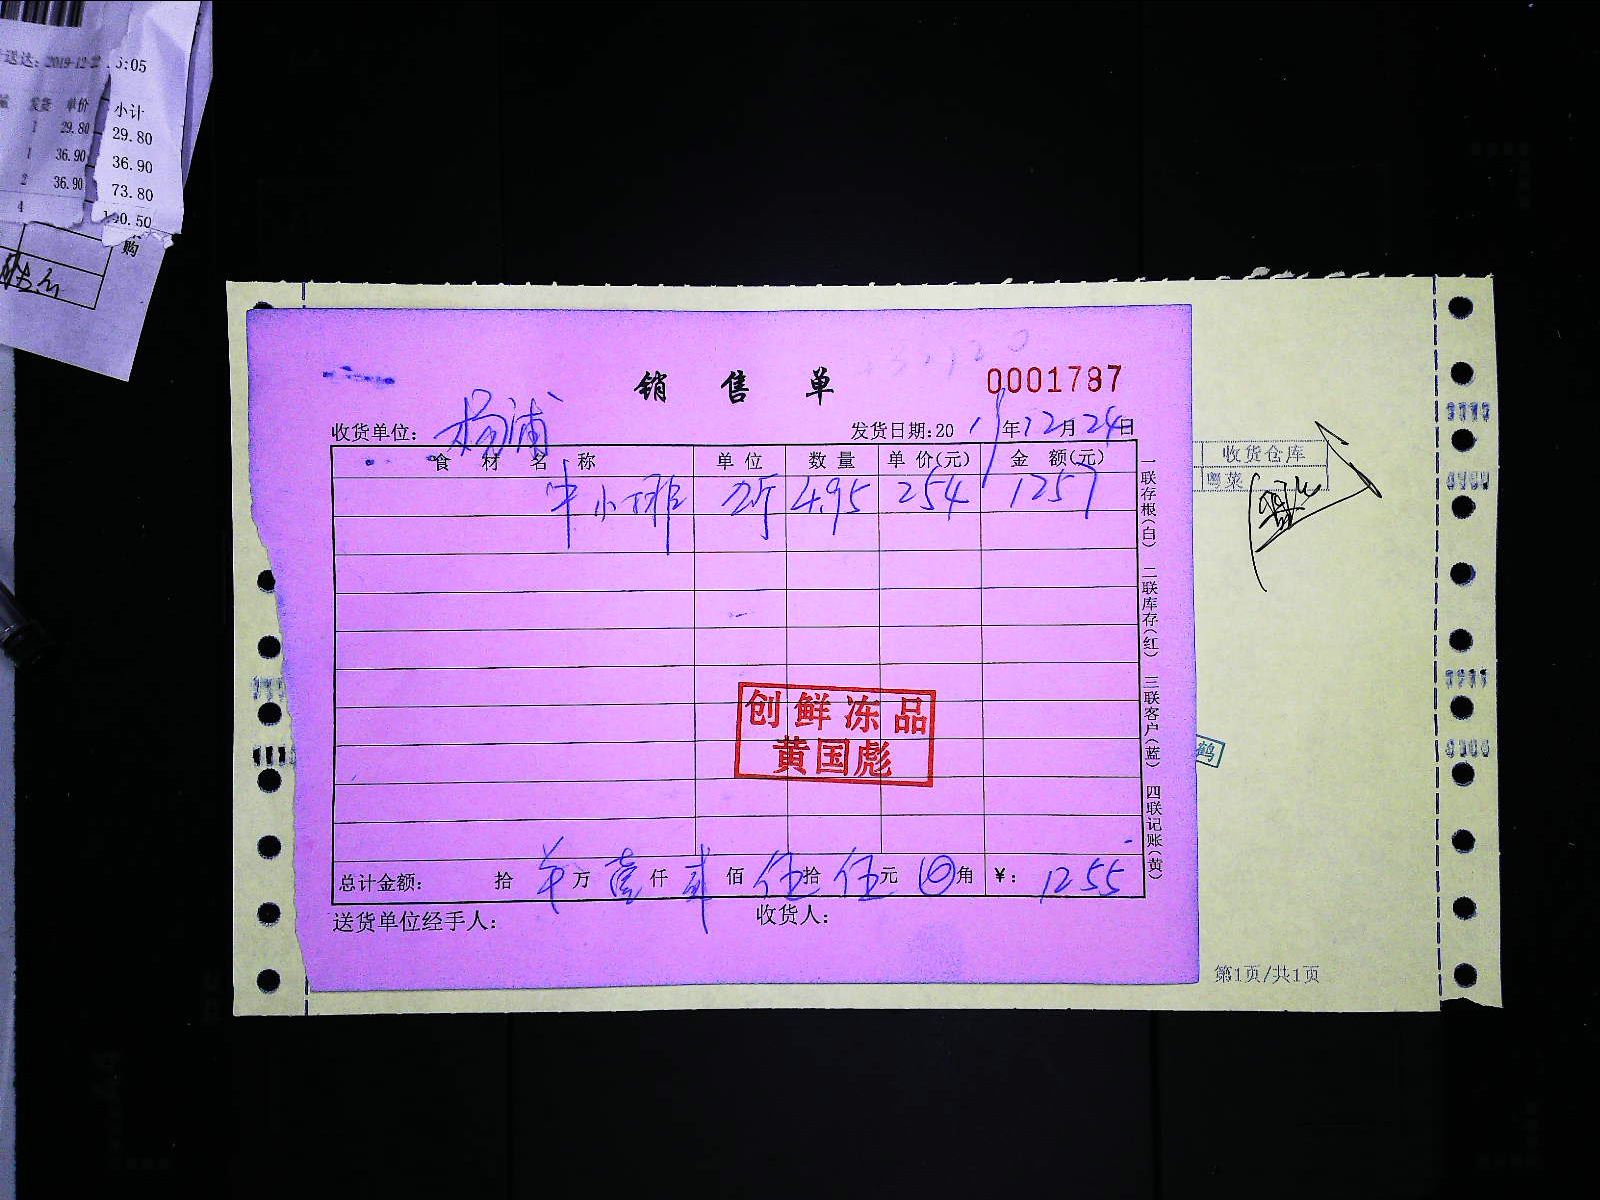 送达: 2019-12-2
5:05
发货 单价 小计
1 29.80 29.80
1 36.90 36.90
2 36.90 73.80
4
购
销售单
0001787
收货单位: 杨浦
发货日期:2019年12月24日
食材名称 单位 数量 单价(元) 金额(元)
牛小排 斤 4.95 254 1257
一联存根(白) 二联库存(红) 三联客户(蓝) 四联记账(黄)
创鲜冻品
黄国彪
总计金额: 拾 万 壹仟 贰佰 伍拾 伍元 角 ¥: 1255
送货单位经手人: 收货人:
收货仓库
粤菜
鹤
第1页/共1页